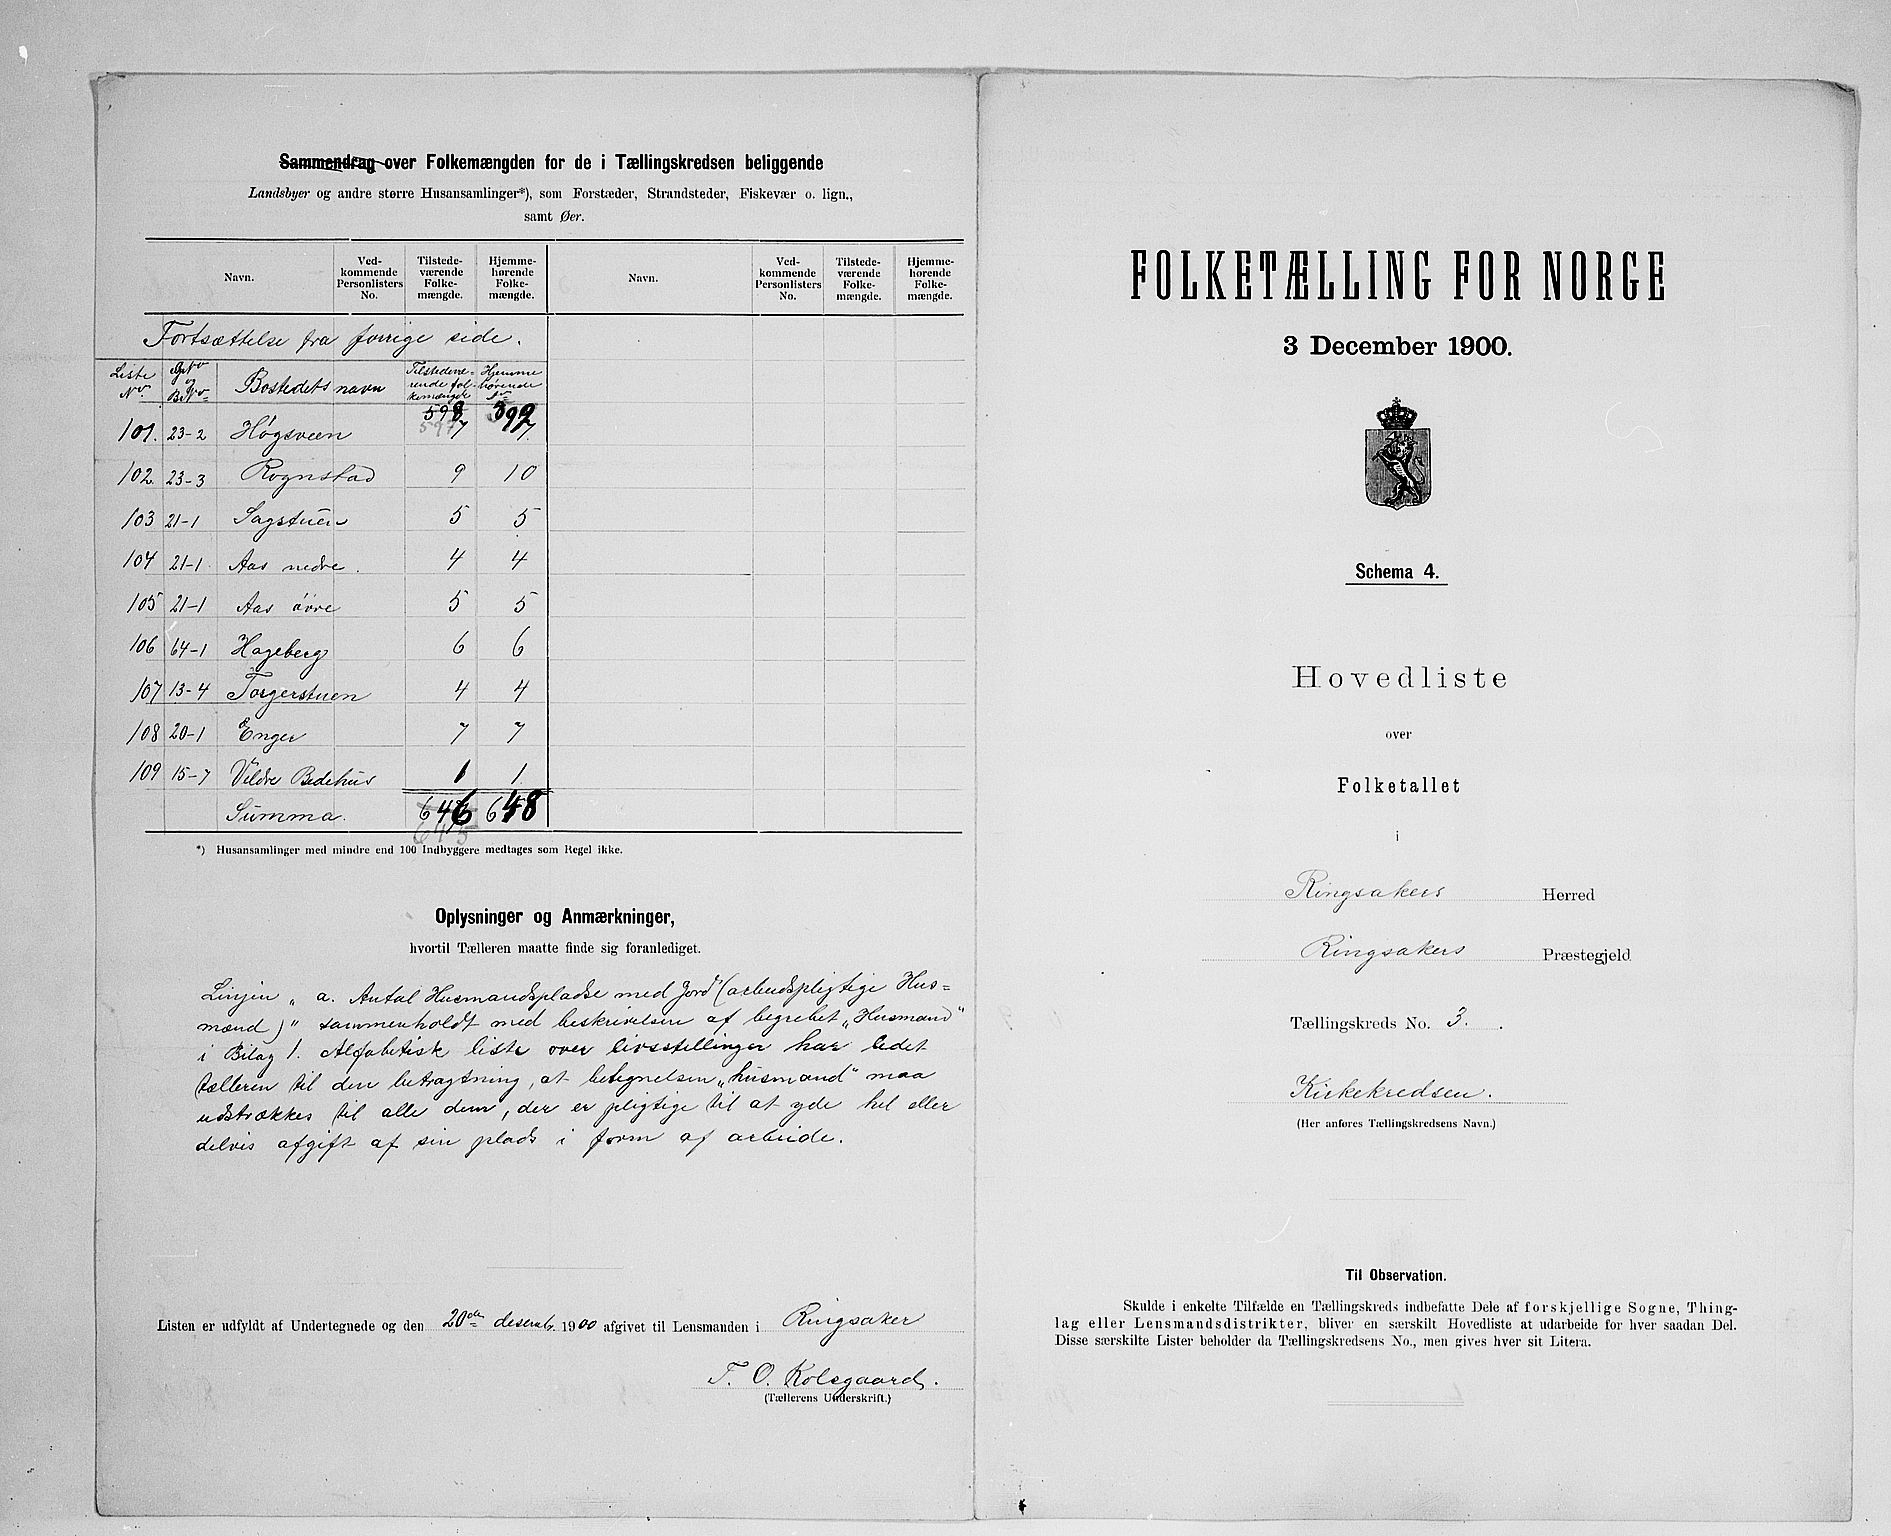 Sammendrag over Folkemængden for de i Tællingskredsen beliggende
Landsbyer og andre større Husansamlinger*), som Forstæder, Strandsteder, Fiskevær o. lign.,
samt Øer.
Navn. Ved-kommende Personlisters No. Tilstede-værende Folke-mængde. Hjemme-hørende Folke-mængde. Navn. Ved-kommende Personlisters No. Tilstede-værende Folke-mængde. Hjemme-hørende Folke-mængde.
Fortsættelse fra forrige side.
Liste No. GNo og BNo Bostedets navn Tilstedeværende folkemængde Hjemmehørende do
598
597
101. 23-2 Høgsveen 7 7
102. 23-3 Rognstad 9 10
103 21-1 Sagstuen 5 5
104 21-1 Aas nedre. 4 4
105 21-1 Aas øvre 5 5
106 64-1 Hageberg 6 6
107 13-4 Torgerstuen 4 4
108 20-1 Enger 7 7
109 15-7 Vildre Bedehus 1 1
Summa. 646 648
645
*) Husansamlinger med mindre end 100 Indbyggere medtages som Regel ikke.
Oplysninger og Anmærkninger,
hvortil Tælleren maatte finde sig foranlediget.
Linjen „a. Antal Husmandspladse med Jord (arbeidspligtige Hus=
mænd)" sammenholdt med beskrivelsen af begrebet „Husmand"
i Bilag 1. Alfabetisk liste over livsstillinger har ledet
tælleren til den betragtning, at betegnelsen „husmand" maa
udstrækkes til alle dem, der er pligtige til at yde hel eller
delvis afgift af sin plads i form af arbeide.
Listen er udfyldt af Undertegnede og den 20de desemb. 1900 afgivet til Lensmanden i Ringsaker
T. O. Kolsgaard.
(Tællerens Underskrift.)
FOLKETÆLLING FOR NORGE
3 December 1900.
Schema 4.
Hovedliste
over
Folketallet
i
Ringsakers Herred
Ringsakers Præstegjeld
Tællingskreds No. 3.
Kirkekredsen.
(Her anføres Tællingskredsens Navn.)
Til Observation.
Skulde i enkelte Tilfælde en Tællingskreds indbefatte Dele af forskjellige Sogne, Thing-
lag eller Lensmandsdistrikter, bliver en særskilt Hovedliste at udarbeide for hver saadan Del.
Disse særskilte Lister beholder da Tællingskredsens No., men gives hver sit Litera.